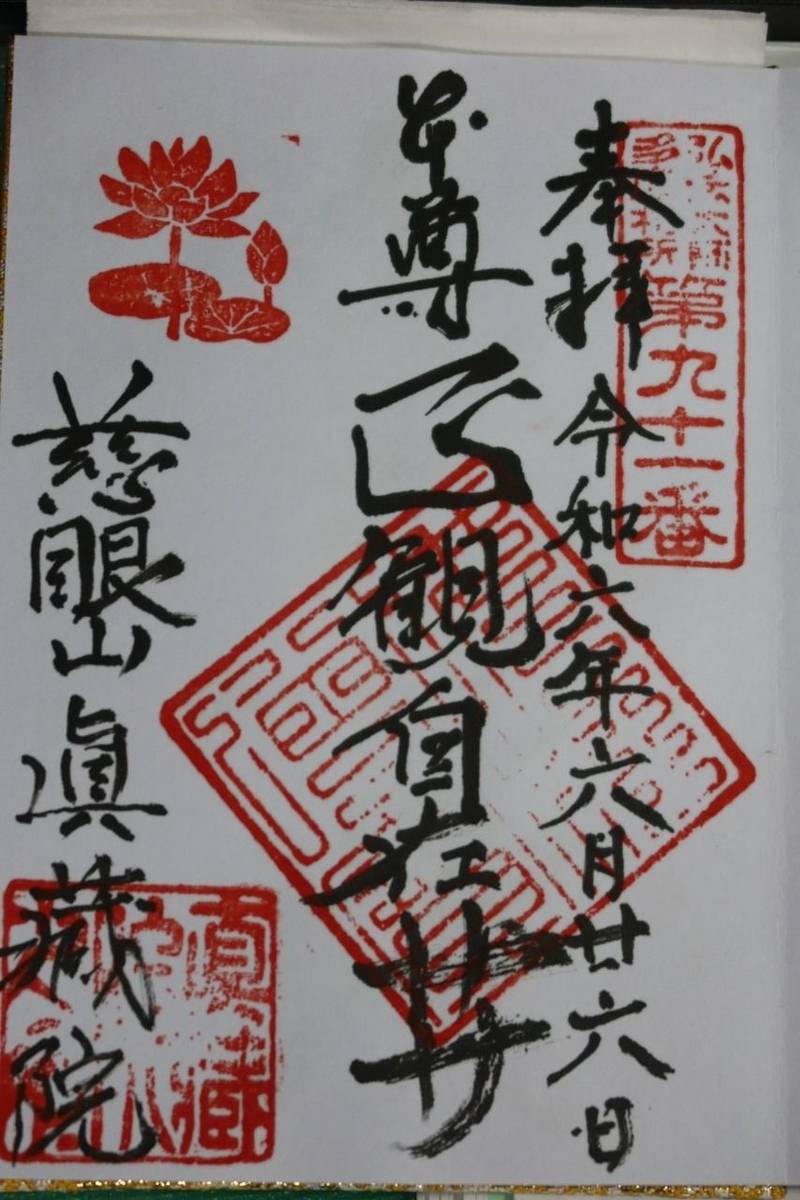 弘法大師
第九十一番
奉拝 令和六年六月廿六日
本尊 正観自在𦬇
慈眼山 眞藏院